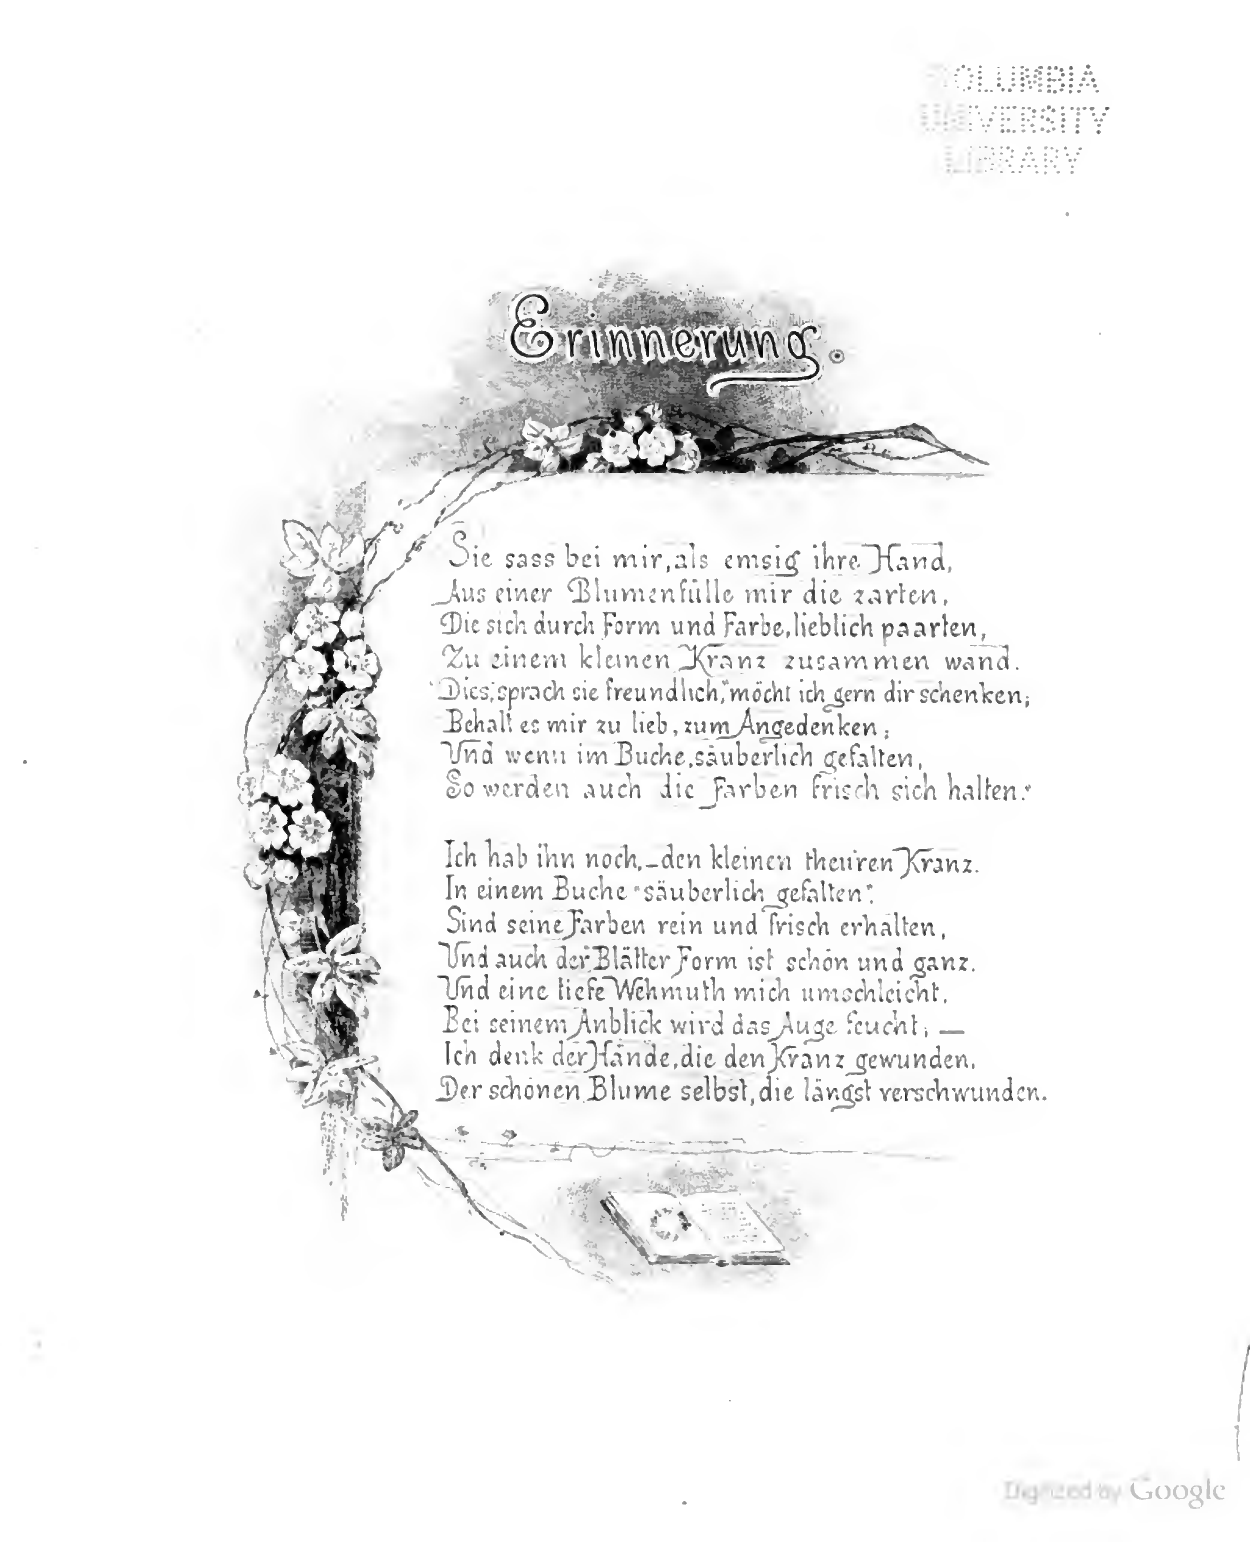 COLUMBIA
UNIVERSITY
LIBRARY
Erinnerung.
Sie sass bei mir, als emsig ihre Hand,
Aus einer Blumenfülle mir die zarten,
Die sich durch Form und Farbe, lieblich paarten,
Zu einem kleinen Kranz zusammen wand.
"Dies," sprach sie freundlich, "möcht ich gern dir schenken;
Behalt es mir zu lieb, zum Angedenken;
Und wenn im Buche, säuberlich gefalten,
So werden auch die Farben frisch sich halten."
Ich hab ihn noch, – den kleinen theu'ren Kranz.
In einem Buche "säuberlich gefalten".
Sind seine Farben rein und frisch erhalten,
Und auch der Blätter Form ist schön und ganz.
Und eine tiefe Wehmuth mich umschleicht.
Bei seinem Anblick wird das Auge feucht; —
Ich denk der Hände, die den Kranz gewunden,
Der schönen Blume selbst, die längst verschwunden.
Digitized by Google